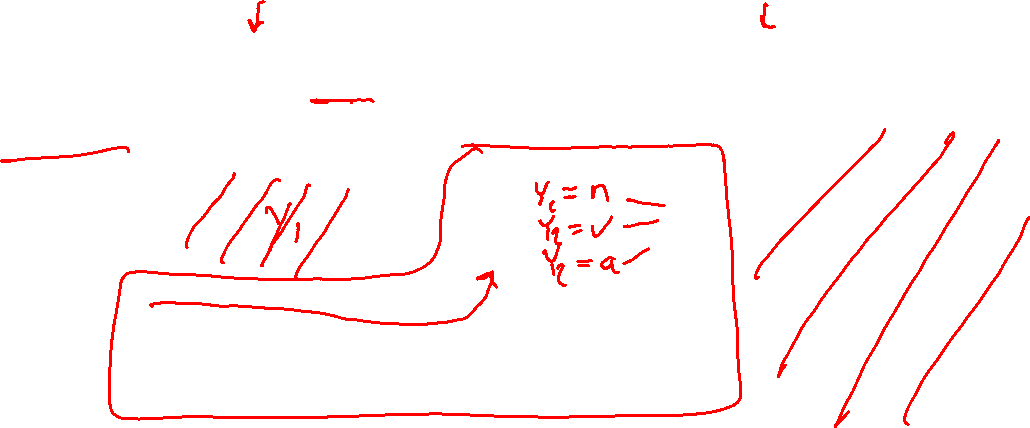 Y₁
Y₂ = n
Y₂ = v
Y₂ = a